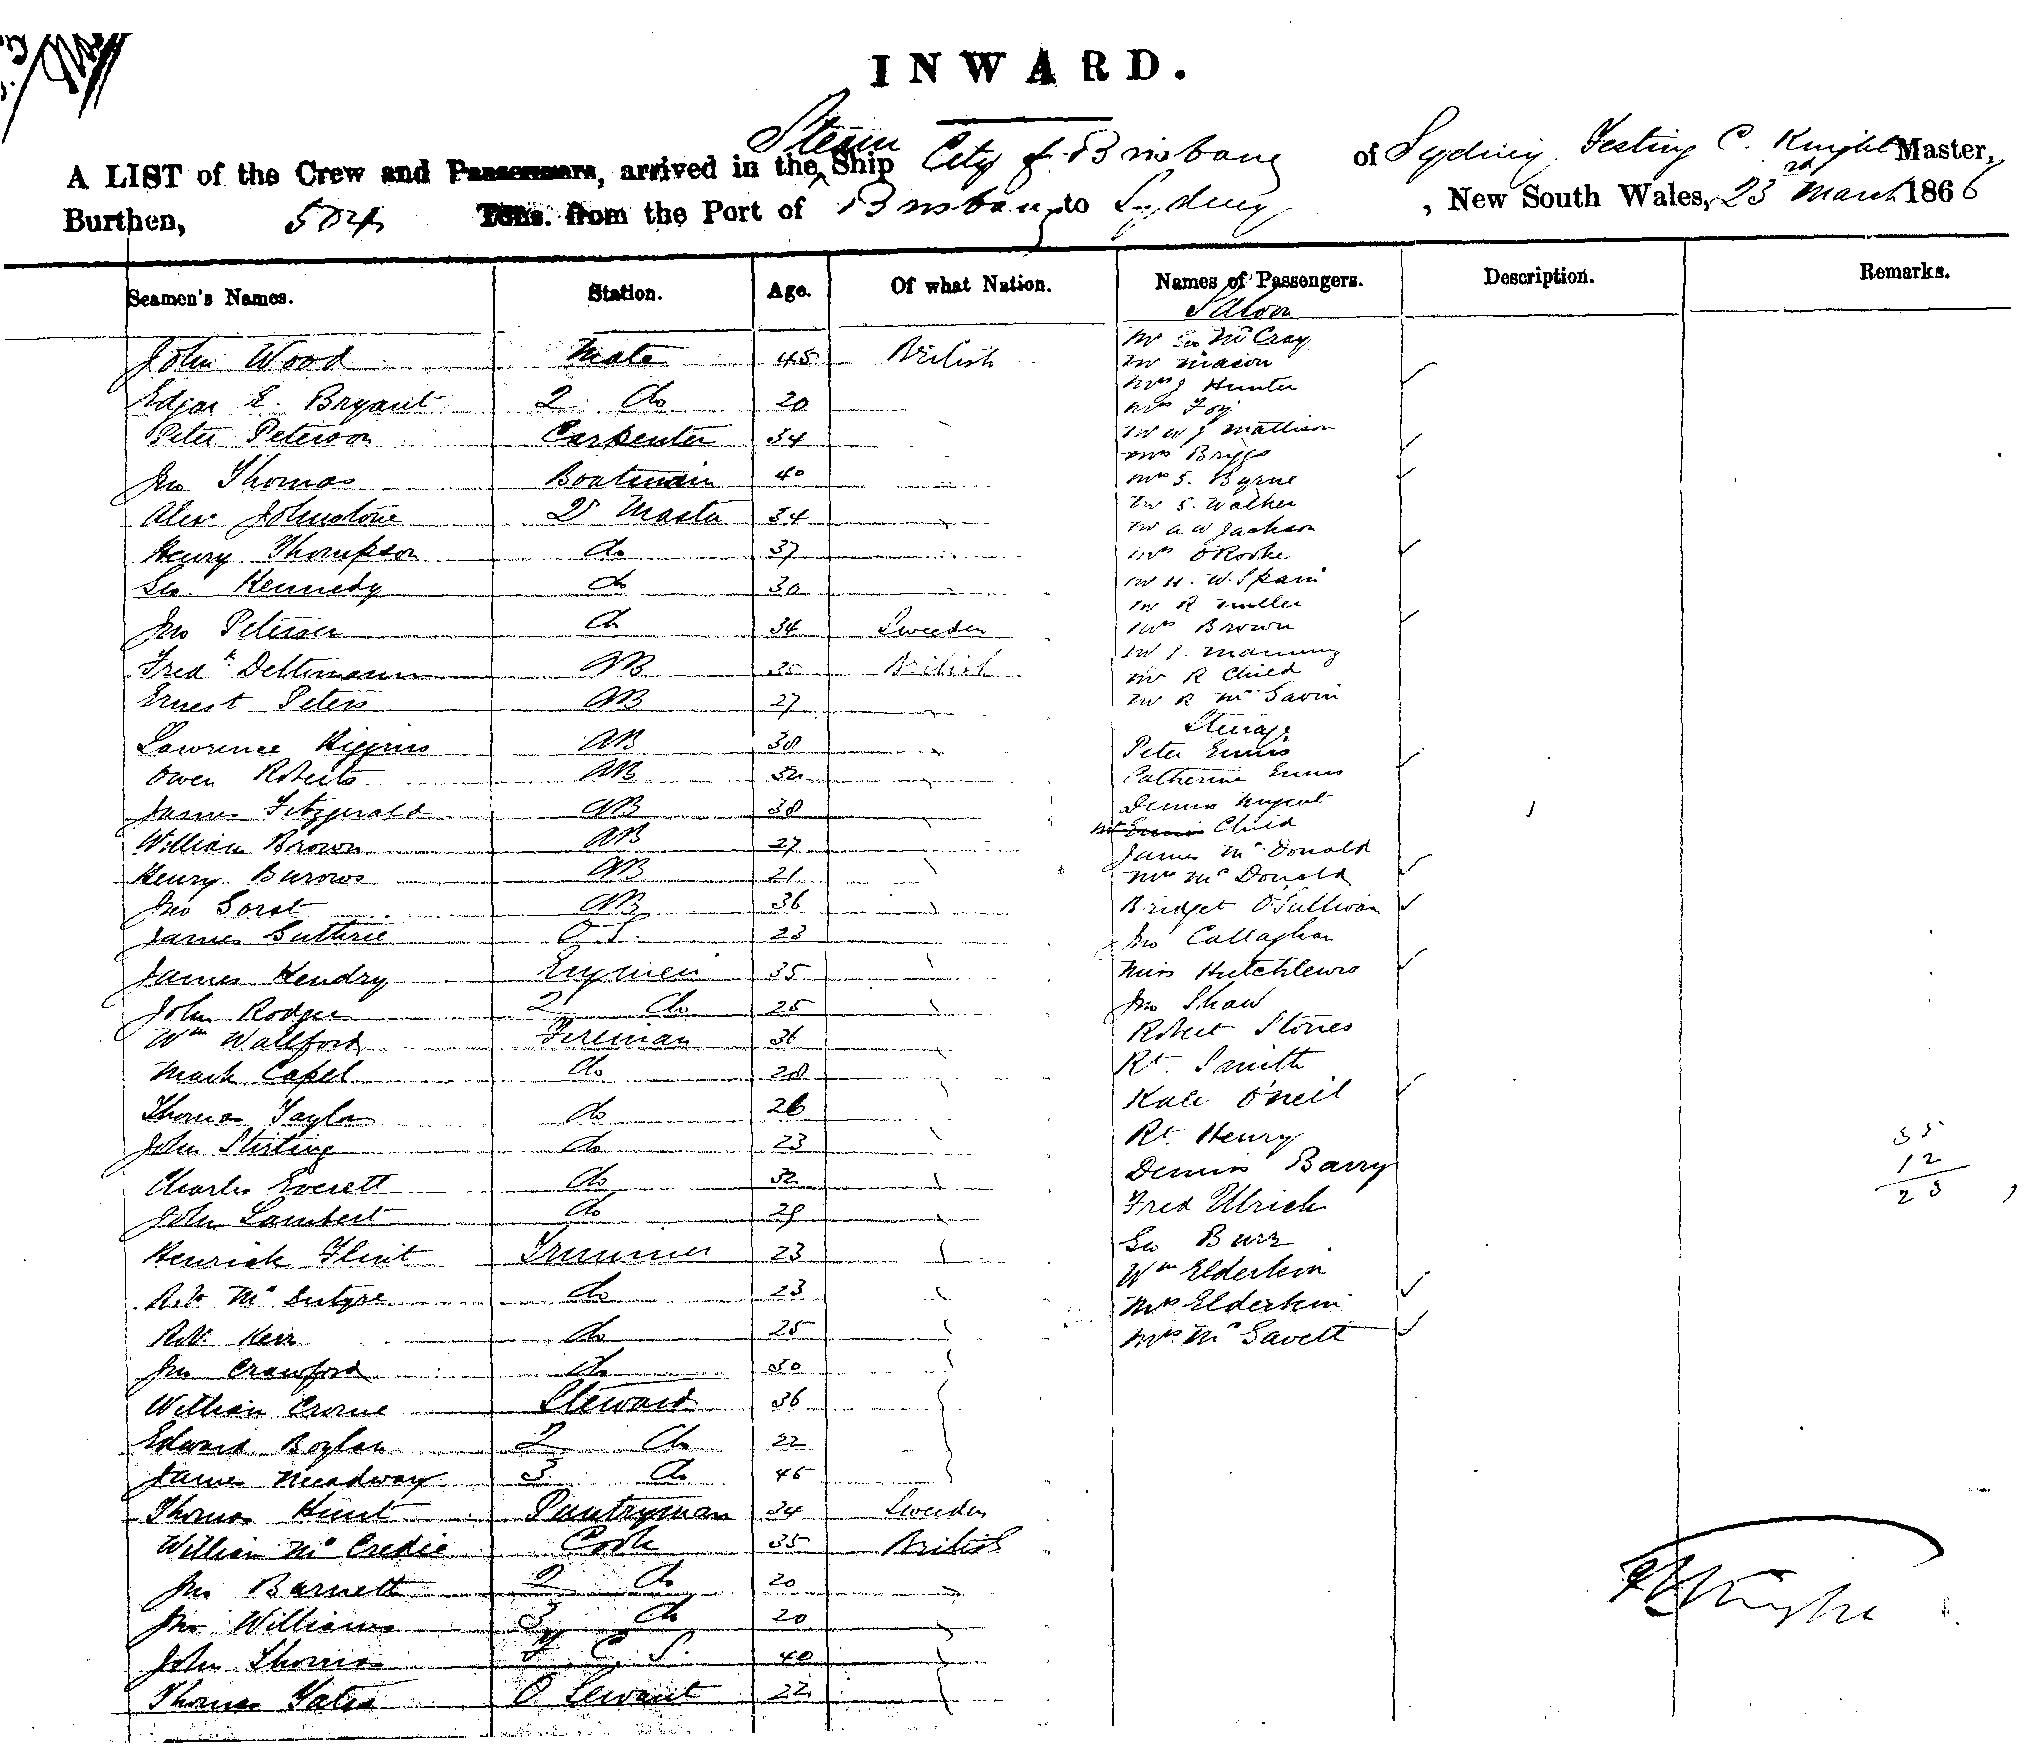 INWARD.
A LIST of the Crew and Passengers, arrived in the Steam Ship City of Brisbane of Sydney, C. Knight Master,
Burthen, 504 Tons. from the Port of Brisbane to Sydney, New South Wales, 23rd March 1866
Seamen's Names. Station. Age. Of what Nation. Names of Passengers. Description. Remarks.
Saloon
John Wood Mate 45 British
Edgar E. Bryant 2 do 20
Peter Peterson Carpenter 34
Jno Thomas 40
Alexr Johnstone 34
Henry Thompson do 37
Geo. Kennedy do 30
Jno Peterson do 34 Sweeden
Fredk AB British
Ernest Peters AB 27
Lawrence Higgins AB 38
Owen Roberts AB
James Fitzgerald AB 38
William Brown AB 27
Henry Burows AB 21
Jno AB 36
James Guthrie O.S. 23
James Hendry 35
John Rodger 2 do 25
Wm Wallford Fireman 36
Mark Capel do 28
Thomas Taylor do 26
John Stirling do 23
Charles Everett do 32
John Lambert do 29
Henrick Flint Trimmer 23
Robt McIntyre do 23
Robt Kerr do 25
Jno Crawford do
William Steward 36
Edward Boylan 2 do 22
James Meadway 3 do 45
Thomas Hunt Pantryman 34 Sweeden
William McCredie Cook 35 British
Jno Barnett 2 do 20
Jno Williams 3 do 20
John Thomas 40
Thomas Yates 22
Mr Geo McCray
Mr Mason
Mrs J Hunter
Mrs Foy
Mr W J Mattison
Mrs Briggs
Mrs S. Byrne
Mr S. Walker
Mr A W Jackson
Mrs O'Rorke
Mr H. W. Spain
Mr R Miller
Mrs Brown
Mr J. Manning
Mr R Child
Mr R McGavin
Steerage
Peter Ennis
Catherine Ennis
Dennis Nugent
Child
James McDonald
Mrs McDonald
Bridget O'Sullivan
Jno Callaghan
Miss
Jno Shaw
Robert Stones
Rt. Smith
Kate O'neil
Rt. Henry
Dennis Barry
Fred Ulrich
Geo Burr
Wm Elderkin
Mrs Elderkin
Mrs
35
12
23